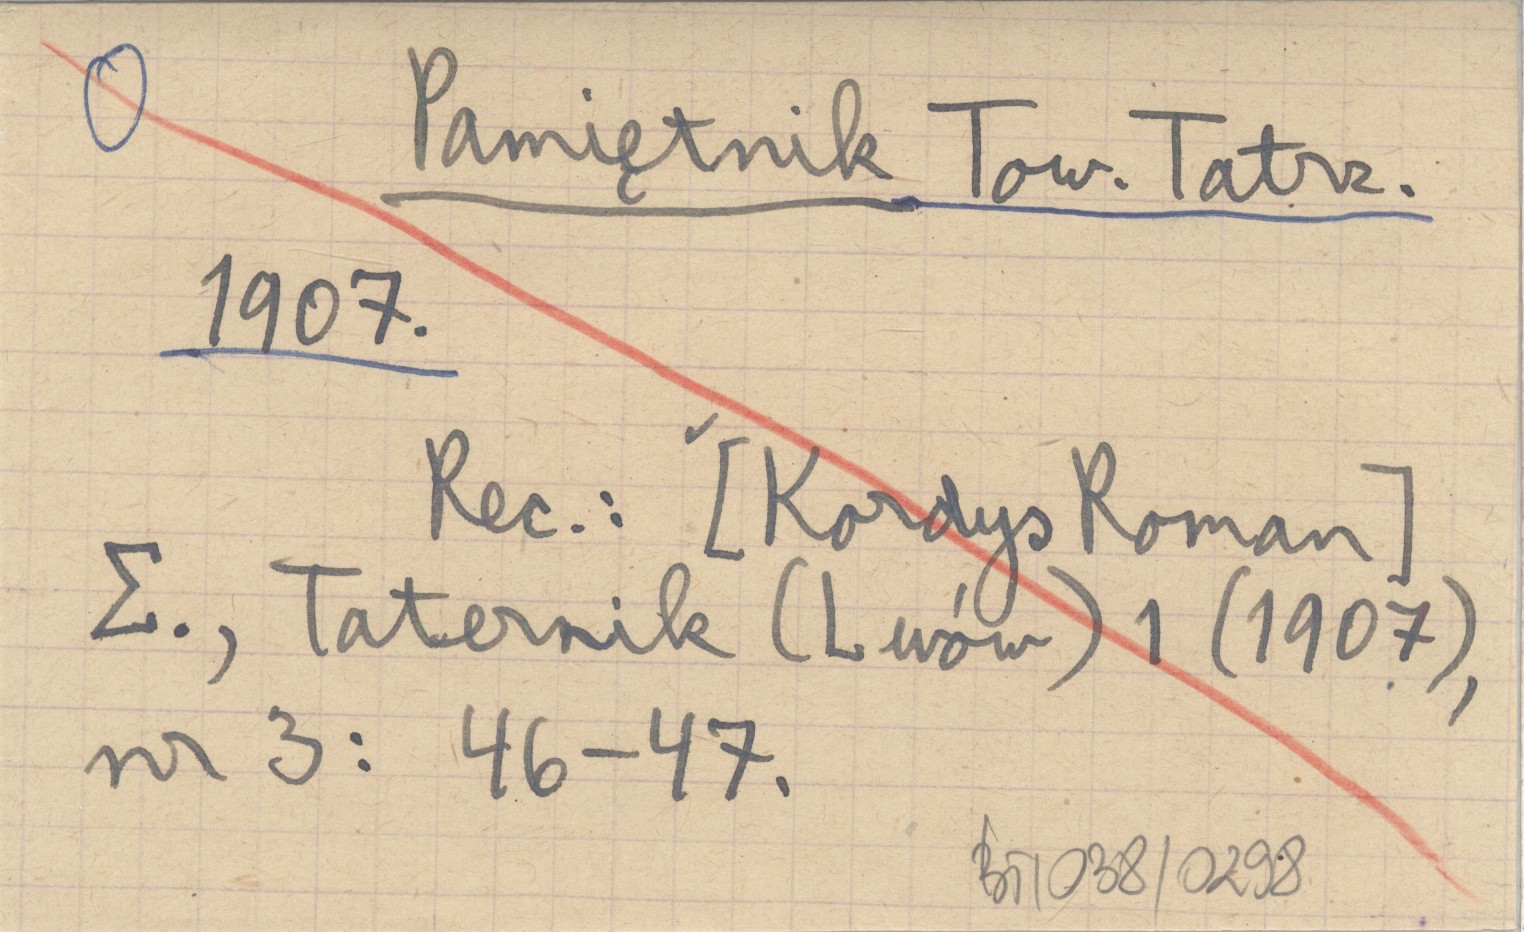 Pamiętnik Tow. Tatrz.
1907.
Rec.: [Kordys Roman]
Σ., Taternik (Lwów) 1 (1907),
nr 3: 46–47.
BT/038/0298